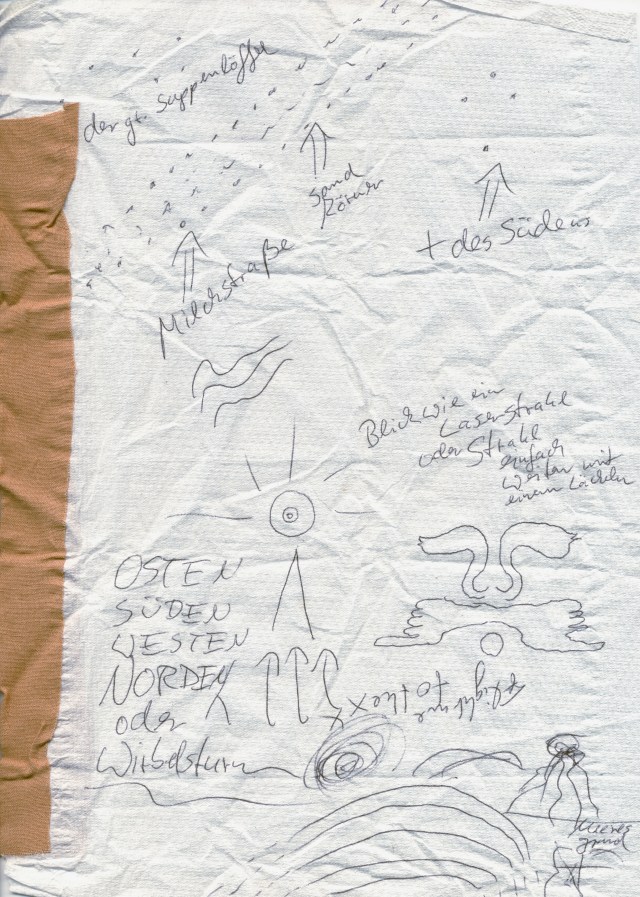 der gr. Suppenlöffel
Sand
Körner
+ des Südens
Milchstraße
Blick wie ein
Laserstrahl
oder Strahl
einfach
weiter mit
einem Lächeln
OSTEN
SÜDEN
WESTEN
NORDEN
oder
Wirbelsturm
Flight me
to the X
Meeres
grund